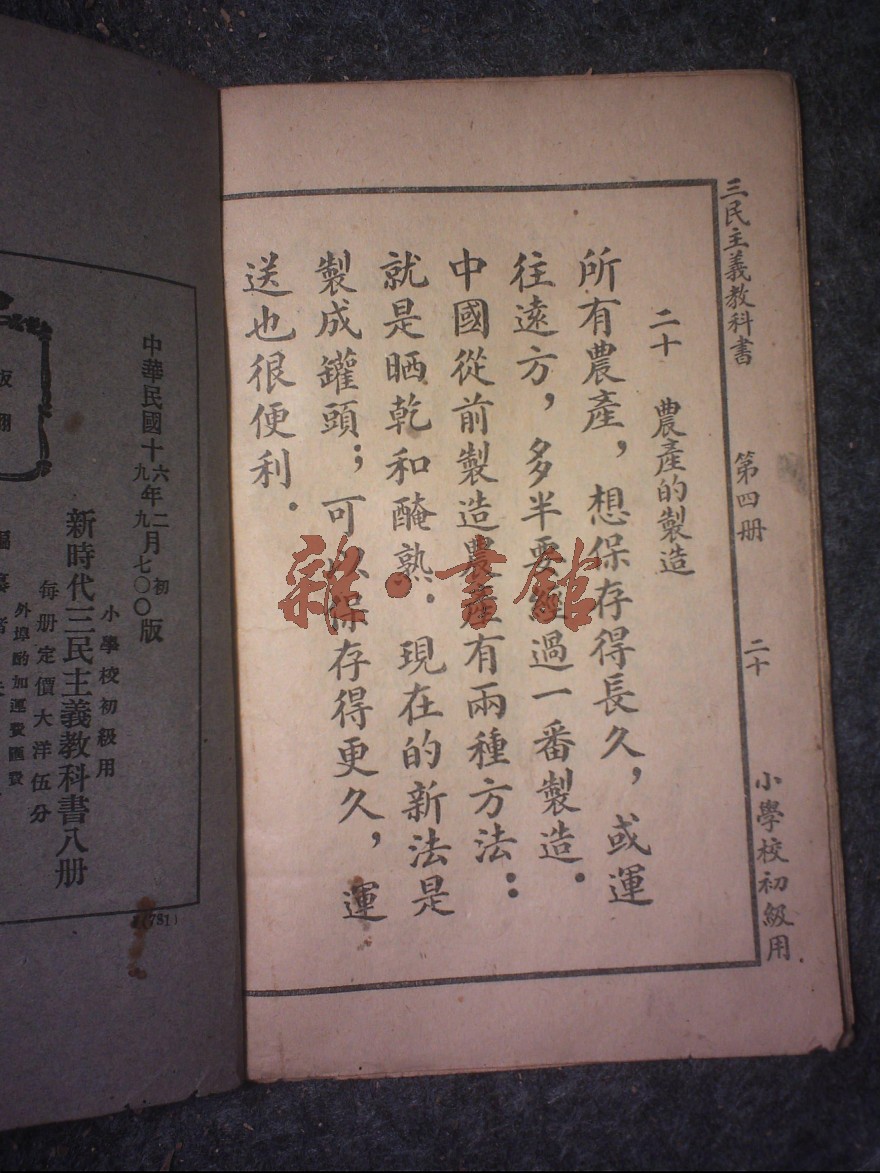 三民主義教科書 第四册 二十 小學校初級用
二十 農產的製造
所有農產，想保存得長久，或運
往遠方，多半要經過一番製造．
中國從前製造農產有兩種方法：
就是晒乾和醃熟．現在的新法是
製成罐頭；可以保存得更久，運
送也很便利．
雜·書館
中華民國十六年二月初版
九年九月七〇〇版
小學校初級用
新時代三民主義教科書八册
每册定價大洋伍分
外埠酌加運費匯費
編纂者
版 翻
(781)